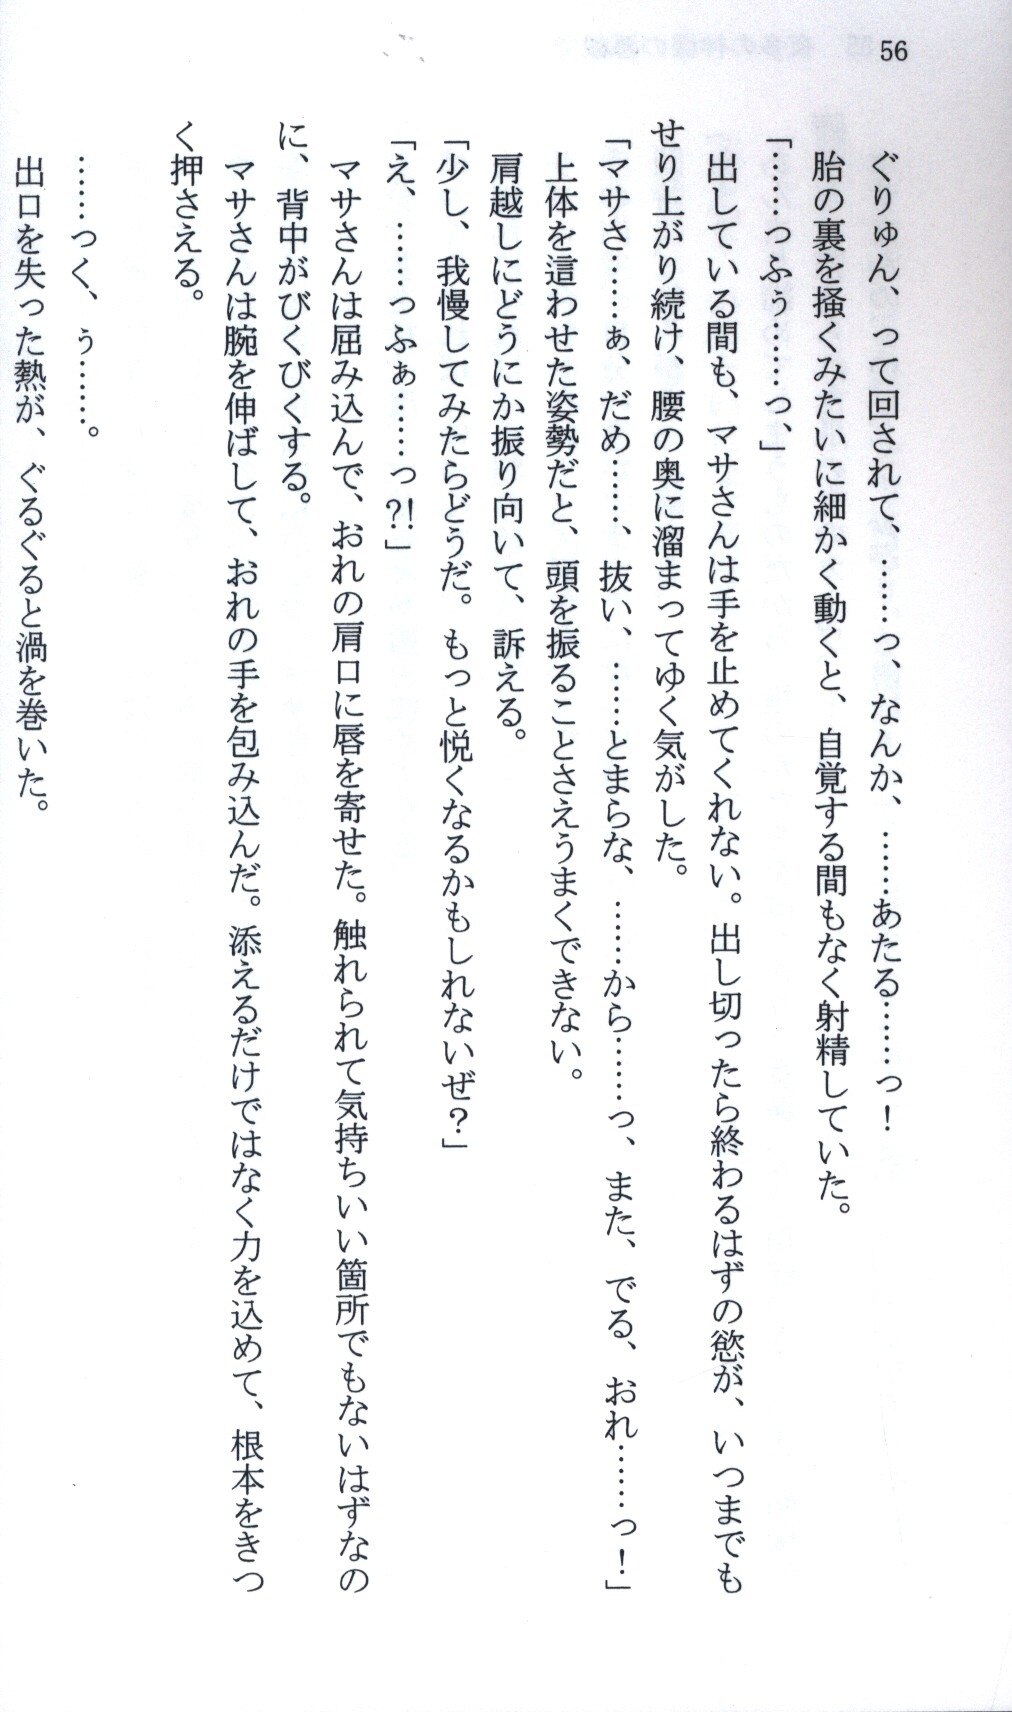 56
ぐりゅん、って回されて、……っ、なんか、……あたる……っ！
胎の裏を掻くみたいに細かく動くと、自覚する間もなく射精していた。
「……っふぅ……っ、」
出している間も、マサさんは手を止めてくれない。出し切ったら終わるはずの慾が、いつまでも
せり上がり続け、腰の奥に溜まってゆく気がした。
「マサさ……ぁ、だめ……、抜い、……とまらな、……から……っ、また、でる、おれ……っ！」
上体を這わせた姿勢だと、頭を振ることさえうまくできない。
肩越しにどうにか振り向いて、訴える。
「少し、我慢してみたらどうだ。もっと悦くなるかもしれないぜ？」
「え、……っふぁ……っ?!」
マサさんは屈み込んで、おれの肩口に唇を寄せた。触れられて気持ちいい箇所でもないはずなの
に、背中がびくびくする。
マサさんは腕を伸ばして、おれの手を包み込んだ。添えるだけではなく力を込めて、根本をきつ
く押さえる。
……っく、ぅ……。
出口を失った熱が、ぐるぐると渦を巻いた。